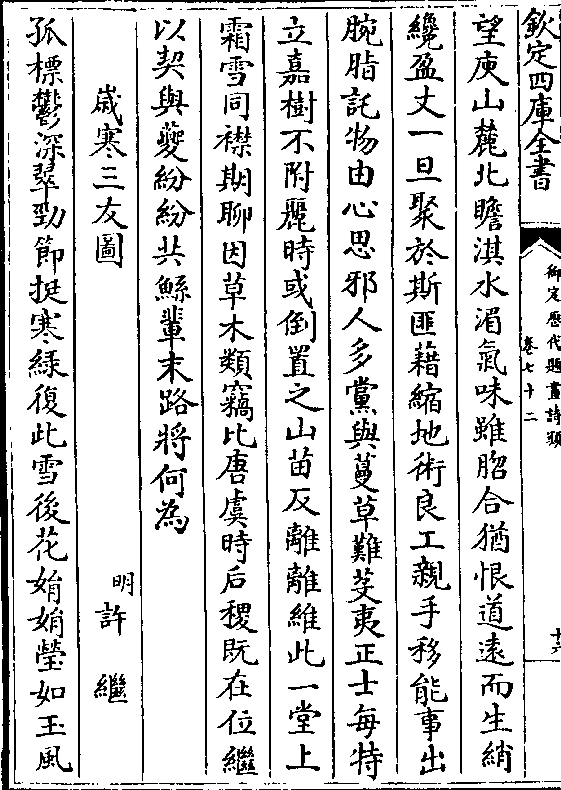 欽定四庫全書
御定歷代題畫詩類
卷七十二
十六
望庾山麓北瞻淇水湄氣味雖脗合猶恨道遠而生綃
纔盈丈一旦聚於斯匪藉縮地術良工親手移能事出
腕脂託物由心思邪人多黨與蔓草難芟夷正士每特
立嘉樹不附麗時或倒置之山苗反離離維此一堂上
霜雪同襟期聊因草木類竊比唐虞時后稷既在位繼
以契與夔紛紛共鯀輩末路將何為
歲寒三友圖
明許繼
孤標鬱深翠勁節挺寒緑復此雪後花娟娟瑩如玉風